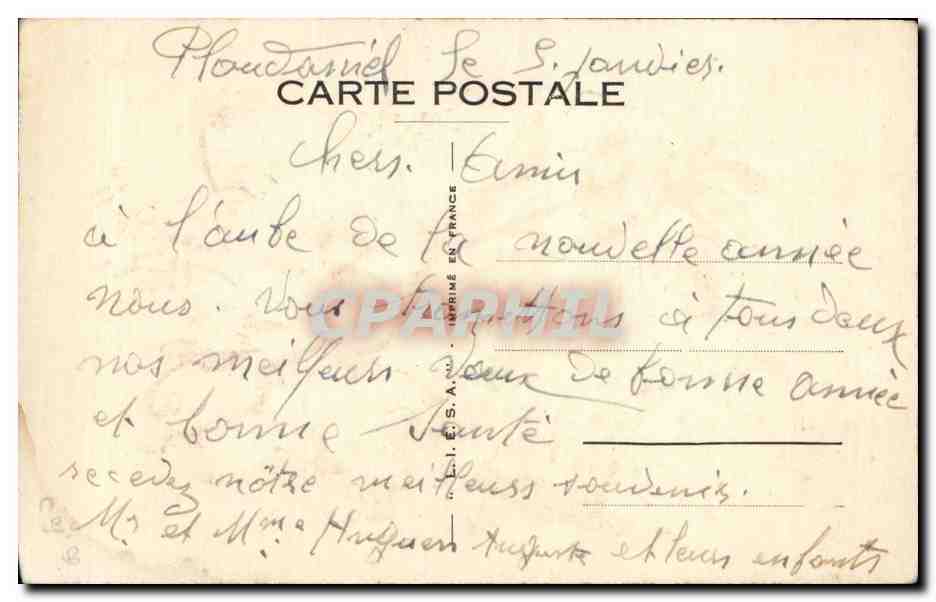 Ploudaniel le 5. janvier.
CARTE POSTALE
chers. amis
à l'aube de la nouvelle année
nous. vous transmettons à tous deux
nos meilleurs voeux de bonne année
et bonne santé
recevez nôtre meilleurs souvenir.
Mr et Mme Huguen Auguste et leurs enfants
"L.I.E.S.A." - IMPRIMÉ EN FRANCE
CPAPHIL